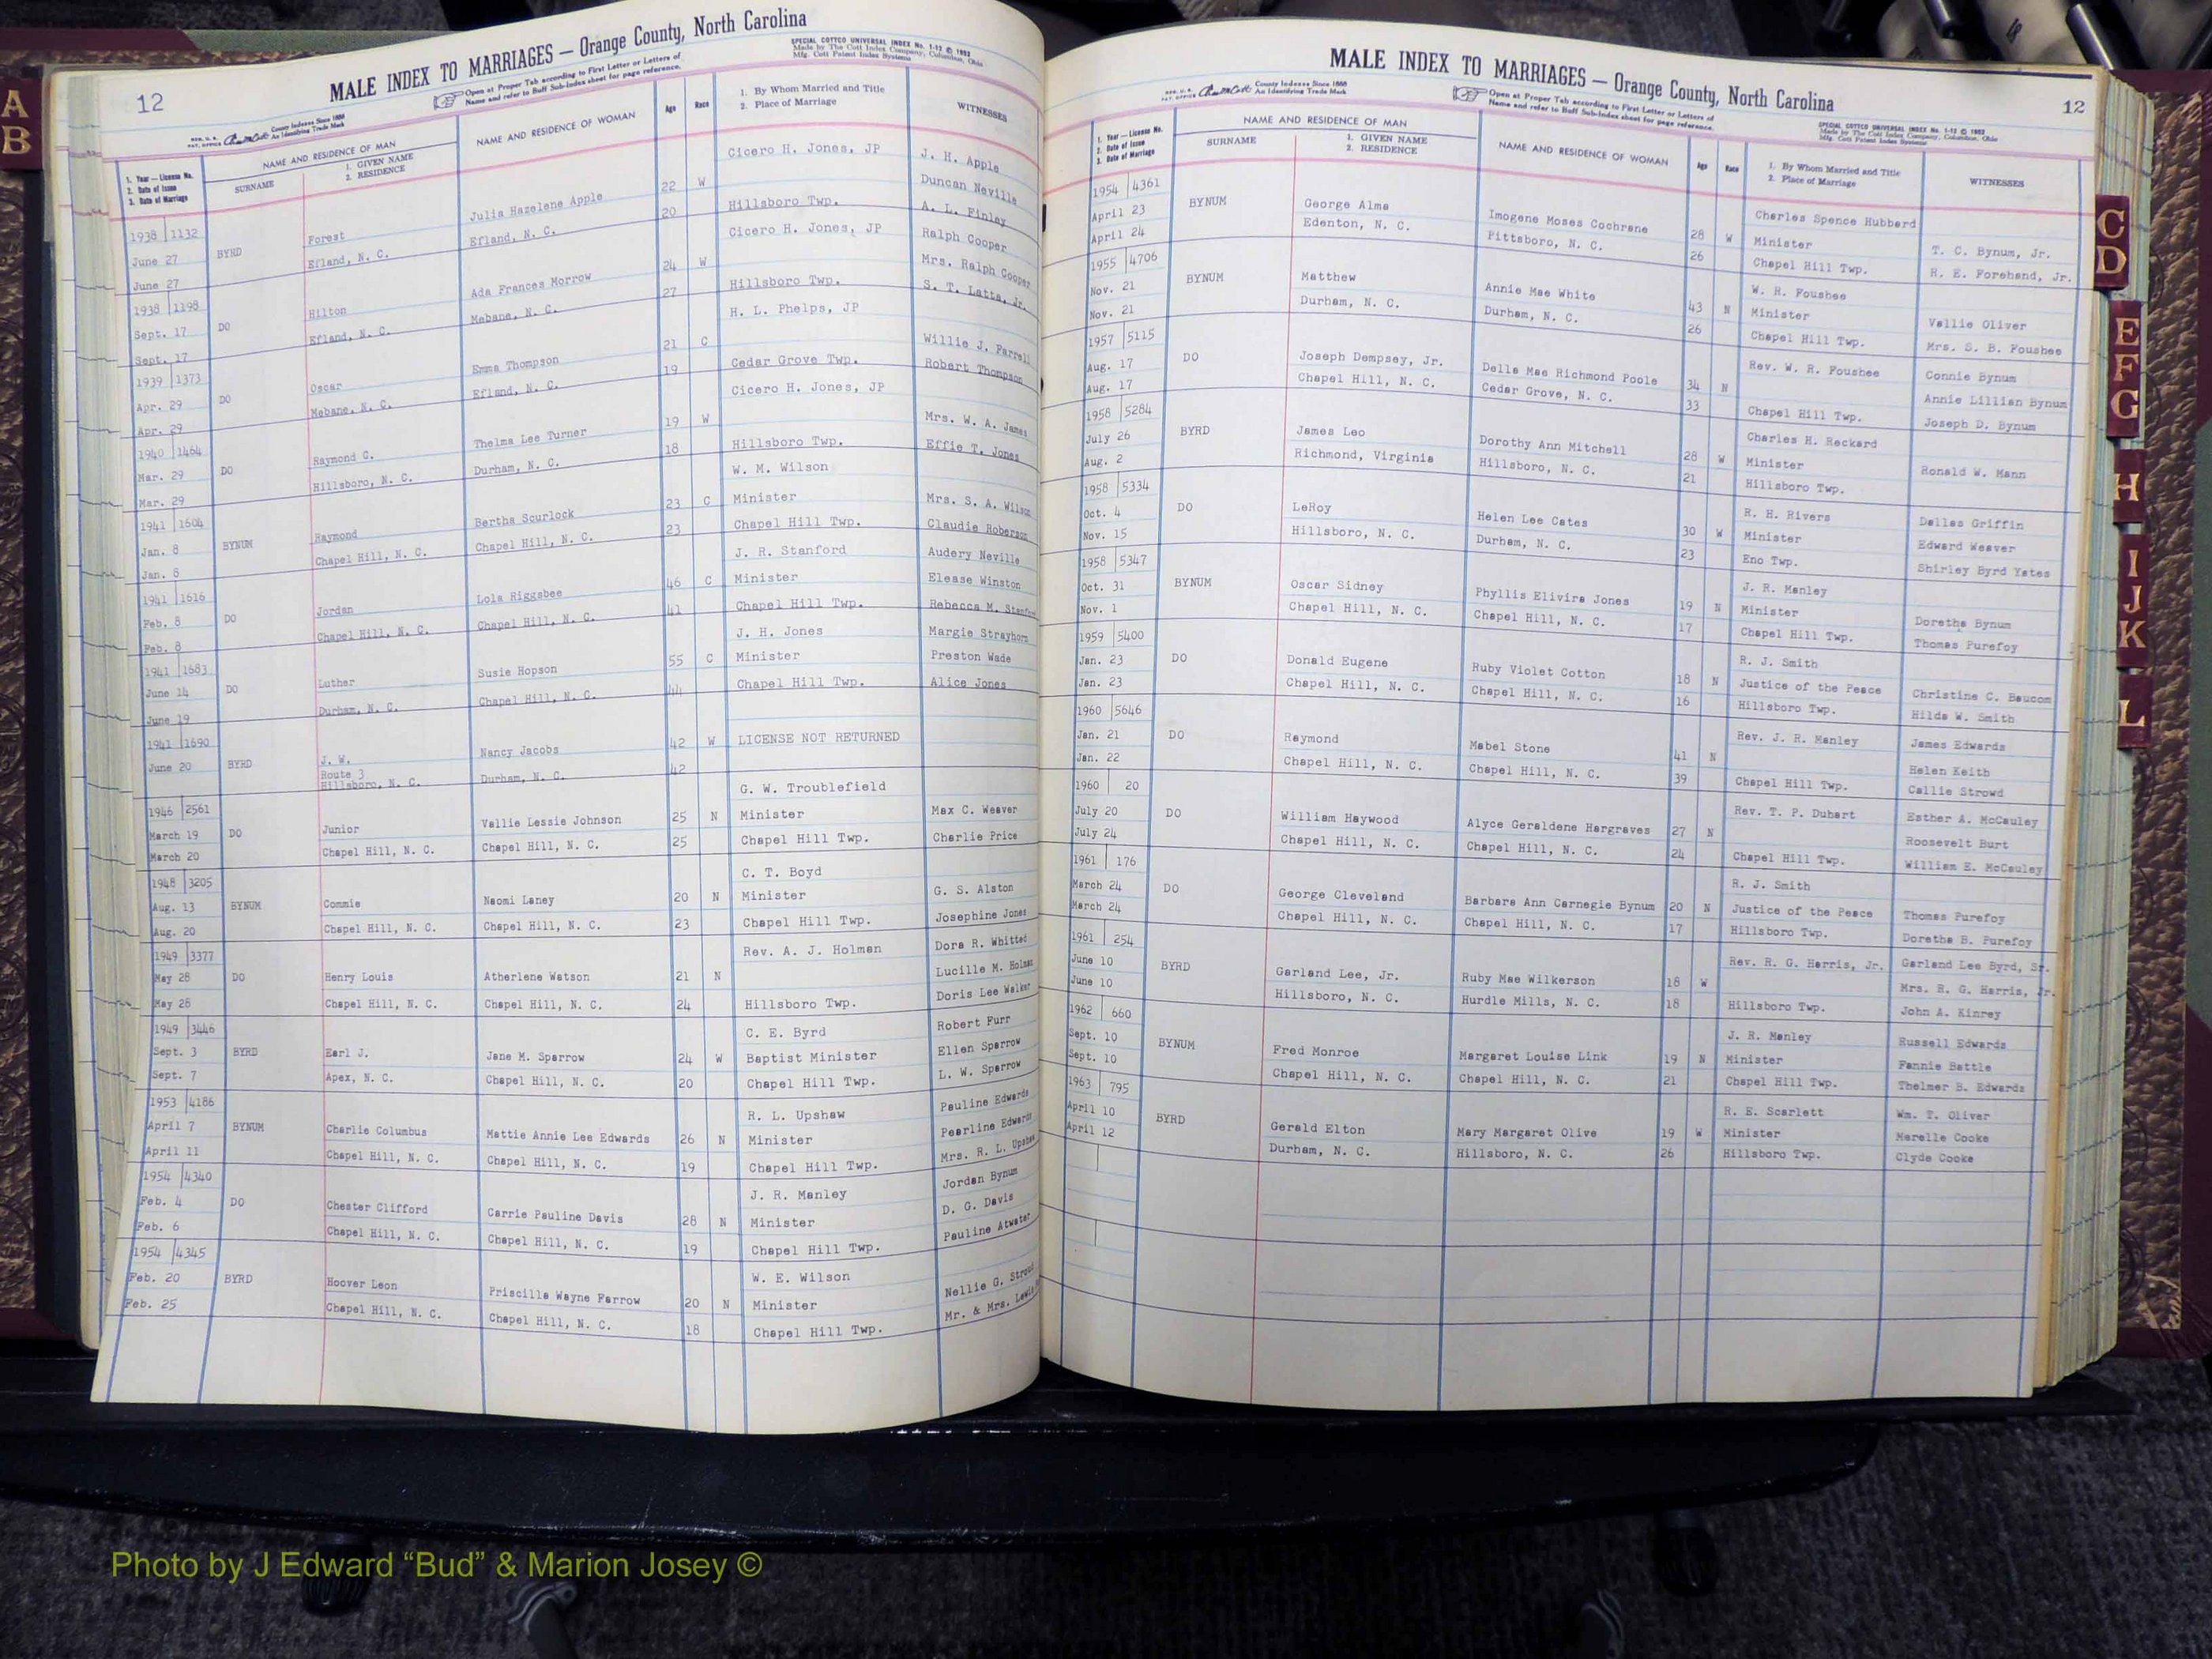 12
MALE INDEX TO MARRIAGES — Orange County, North Carolina
SPECIAL COTTCO UNIVERSAL INDEX No. 1-12 © 1952
Made by The Cott Index Company, Columbus, Ohio
Mfg. Cott Patent Index Systems
County Indexes Since 1888
An Identifying Trade Mark
Open at Proper Tab according to First Letter or Letters of
Name and refer to Buff Sub-Index sheet for page reference.
1. Year — License No.
2. Date of Issue
3. Date of Marriage
NAME AND RESIDENCE OF MAN
SURNAME
1. GIVEN NAME
2. RESIDENCE
NAME AND RESIDENCE OF WOMAN
Age
Race
1. By Whom Married and Title
2. Place of Marriage
WITNESSES
1938 1132 Cicero H. Jones, JP J. H. Apple
June 27 BYRD Forest Julia Hazelene Apple 22 W Duncan Neville
June 27 Efland, N. C. Efland, N. C. 20 Hillsboro Twp. A. L. Finley
1938 1198 Cicero H. Jones, JP Ralph Cooper
Sept. 17 DO Hilton Ada Frances Morrow 24 W Mrs. Ralph Cooper
Sept. 17 Efland, N. C. Mebane, N. C. 27 Hillsboro Twp. S. T. Latta, Jr.
1939 1373 H. L. Phelps, JP
Apr. 29 DO Oscar Emma Thompson 21 C Willie J. Farrell
Apr. 29 Mebane, N. C. Efland, N. C. 19 Cedar Grove Twp. Robert Thompson
1940 1464 Cicero H. Jones, JP
Mar. 29 DO Raymond G. Thelma Lee Turner 19 W Mrs. W. A. James
Mar. 29 Hillsboro, N. C. Durham, N. C. 18 Hillsboro Twp. Effie T. Jones
1941 1604 W. M. Wilson
Jan. 8 BYNUM Raymond Bertha Scurlock 23 C Minister Mrs. S. A. Wilson
Jan. 8 Chapel Hill, N. C. Chapel Hill, N. C. 23 Chapel Hill Twp. Claudie Roberson
1941 1616 J. R. Stanford Audery Neville
Feb. 8 DO Jordan Lola Riggsbee 46 C Minister Elease Winston
Feb. 8 Chapel Hill, N. C. Chapel Hill, N. C. 41 Chapel Hill Twp. Rebecca M. Stanford
1941 1683 J. H. Jones Margie Strayhorn
June 14 DO Luther Susie Hopson 55 C Minister Preston Wade
June 19 Durham, N. C. Chapel Hill, N. C. 44 Chapel Hill Twp. Alice Jones
1941 1690
June 20 BYRD J. W. Nancy Jacobs 42 W LICENSE NOT RETURNED
Route 3
Hillsboro, N. C. Durham, N. C. 42
1946 2561 G. W. Troublefield
March 19 DO Junior Vallie Lessie Johnson 25 N Minister Max C. Weaver
March 20 Chapel Hill, N. C. Chapel Hill, N. C. 25 Chapel Hill Twp. Charlie Price
1948 3205 C. T. Boyd
Aug. 13 BYNUM Commie Naomi Laney 20 N Minister G. S. Alston
Aug. 20 Chapel Hill, N. C. Chapel Hill, N. C. 23 Chapel Hill Twp. Josephine Jones
1949 3377 Rev. A. J. Holman Dora R. Whitted
May 28 DO Henry Louis Atherlene Watson 21 N Lucille M. Holman
May 28 Chapel Hill, N. C. Chapel Hill, N. C. 24 Hillsboro Twp. Doris Lee Walker
1949 3446 C. E. Byrd Robert Furr
Sept. 3 BYRD Earl J. Jane M. Sparrow 24 W Baptist Minister Ellen Sparrow
Sept. 7 Apex, N. C. Chapel Hill, N. C. 20 Chapel Hill Twp. L. W. Sparrow
1953 4186 R. L. Upshaw Pauline Edwards
April 7 BYNUM Charlie Columbus Mattie Annie Lee Edwards 26 N Minister Pearline Edwards
April 11 Chapel Hill, N. C. Chapel Hill, N. C. 19 Chapel Hill Twp. Mrs. R. L. Upshaw
1954 4340 J. R. Manley Jordan Bynum
Feb. 4 DO Chester Clifford Carrie Pauline Davis 28 N Minister D. G. Davis
Feb. 6 Chapel Hill, N. C. Chapel Hill, N. C. 19 Chapel Hill Twp. Pauline Atwater
1954 4345 W. E. Wilson
Feb. 20 BYRD Hoover Leon Priscilla Wayne Farrow 20 N Minister Nellie G. Stroud
Feb. 25 Chapel Hill, N. C. Chapel Hill, N. C. 18 Chapel Hill Twp. Mr. & Mrs. Lewis
MALE INDEX TO MARRIAGES — Orange County, North Carolina
12
County Indexes Since 1888
An Identifying Trade Mark
Open at Proper Tab according to First Letter or Letters of
Name and refer to Buff Sub-Index sheet for page reference.
SPECIAL COTTCO UNIVERSAL INDEX No. 1-12 © 1952
Made by The Cott Index Company, Columbus, Ohio
Mfg. Cott Patent Index Systems
1. Year — License No.
2. Date of Issue
3. Date of Marriage
NAME AND RESIDENCE OF MAN
SURNAME
1. GIVEN NAME
2. RESIDENCE
NAME AND RESIDENCE OF WOMAN
Age
Race
1. By Whom Married and Title
2. Place of Marriage
WITNESSES
1954 4361 Charles Spence Hubbard
April 23 BYNUM George Alma Imogene Moses Cochrane 28 W Minister T. C. Bynum, Jr.
April 24 Edenton, N. C. Pittsboro, N. C. 26 Chapel Hill Twp. R. E. Forehand, Jr.
1955 4706 W. R. Foushee
Nov. 21 BYNUM Matthew Annie Mae White 43 N Minister Vallie Oliver
Nov. 21 Durham, N. C. Durham, N. C. 26 Chapel Hill Twp. Mrs. S. B. Foushee
1957 5115 Rev. W. R. Foushee Connie Bynum
Aug. 17 DO Joseph Dempsey, Jr. Della Mae Richmond Poole 34 N Annie Lillian Bynum
Aug. 17 Chapel Hill, N. C. Cedar Grove, N. C. 33 Chapel Hill Twp. Joseph D. Bynum
1958 5284 Charles H. Reckard
July 26 BYRD James Leo Dorothy Ann Mitchell 28 W Minister Ronald W. Mann
Aug. 2 Richmond, Virginia Hillsboro, N. C. 21 Hillsboro Twp.
1958 5334 R. H. Rivers Dallas Griffin
Oct. 4 DO LeRoy Helen Lee Cates 30 W Minister Edward Weaver
Nov. 15 Hillsboro, N. C. Durham, N. C. 23 Eno Twp. Shirley Byrd Yates
1958 5347 J. R. Manley
Oct. 31 BYNUM Oscar Sidney Phyllis Elivira Jones 19 N Minister Doretha Bynum
Nov. 1 Chapel Hill, N. C. Chapel Hill, N. C. 17 Chapel Hill Twp. Thomas Purefoy
1959 5400 R. J. Smith
Jan. 23 DO Donald Eugene Ruby Violet Cotton 18 N Justice of the Peace Christine C. Baucom
Jan. 23 Chapel Hill, N. C. Chapel Hill, N. C. 16 Hillsboro Twp. Hilda W. Smith
1960 5646 Rev. J. R. Manley James Edwards
Jan. 21 DO Raymond Mabel Stone 41 N Helen Keith
Jan. 22 Chapel Hill, N. C. Chapel Hill, N. C. 39 Chapel Hill Twp. Callie Strowd
1960 20 Rev. T. P. Duhart Esther A. McCauley
July 20 DO William Haywood Alyce Geraldene Hargraves 27 N Roosevelt Burt
July 24 Chapel Hill, N. C. Chapel Hill, N. C. 24 Chapel Hill Twp. William E. McCauley
1961 176 R. J. Smith
March 24 DO George Cleveland Barbara Ann Carnegie Bynum 20 N Justice of the Peace Thomas Purefoy
March 24 Chapel Hill, N. C. Chapel Hill, N. C. 17 Hillsboro Twp. Doretha B. Purefoy
1961 254 Rev. R. G. Harris, Jr. Garland Lee Byrd, Sr.
June 10 BYRD Garland Lee, Jr. Ruby Mae Wilkerson 18 W Mrs. R. G. Harris, Jr.
June 10 Hillsboro, N. C. Hurdle Mills, N. C. 18 Hillsboro Twp. John A. Kinrey
1962 660 J. R. Manley Russell Edwards
Sept. 10 BYNUM Fred Monroe Margaret Louise Link 19 N Minister Fannie Battle
Sept. 10 Chapel Hill, N. C. Chapel Hill, N. C. 21 Chapel Hill Twp. Thelmer B. Edwards
1963 795 R. E. Scarlett Wm. T. Oliver
April 10 BYRD Gerald Elton Mary Margaret Olive 19 W Minister Marelle Cooke
April 12 Durham, N. C. Hillsboro, N. C. 26 Hillsboro Twp. Clyde Cooke
A
B
C
D
E
F
G
H
I
J
K
L
Photo by J Edward “Bud” & Marion Josey ©